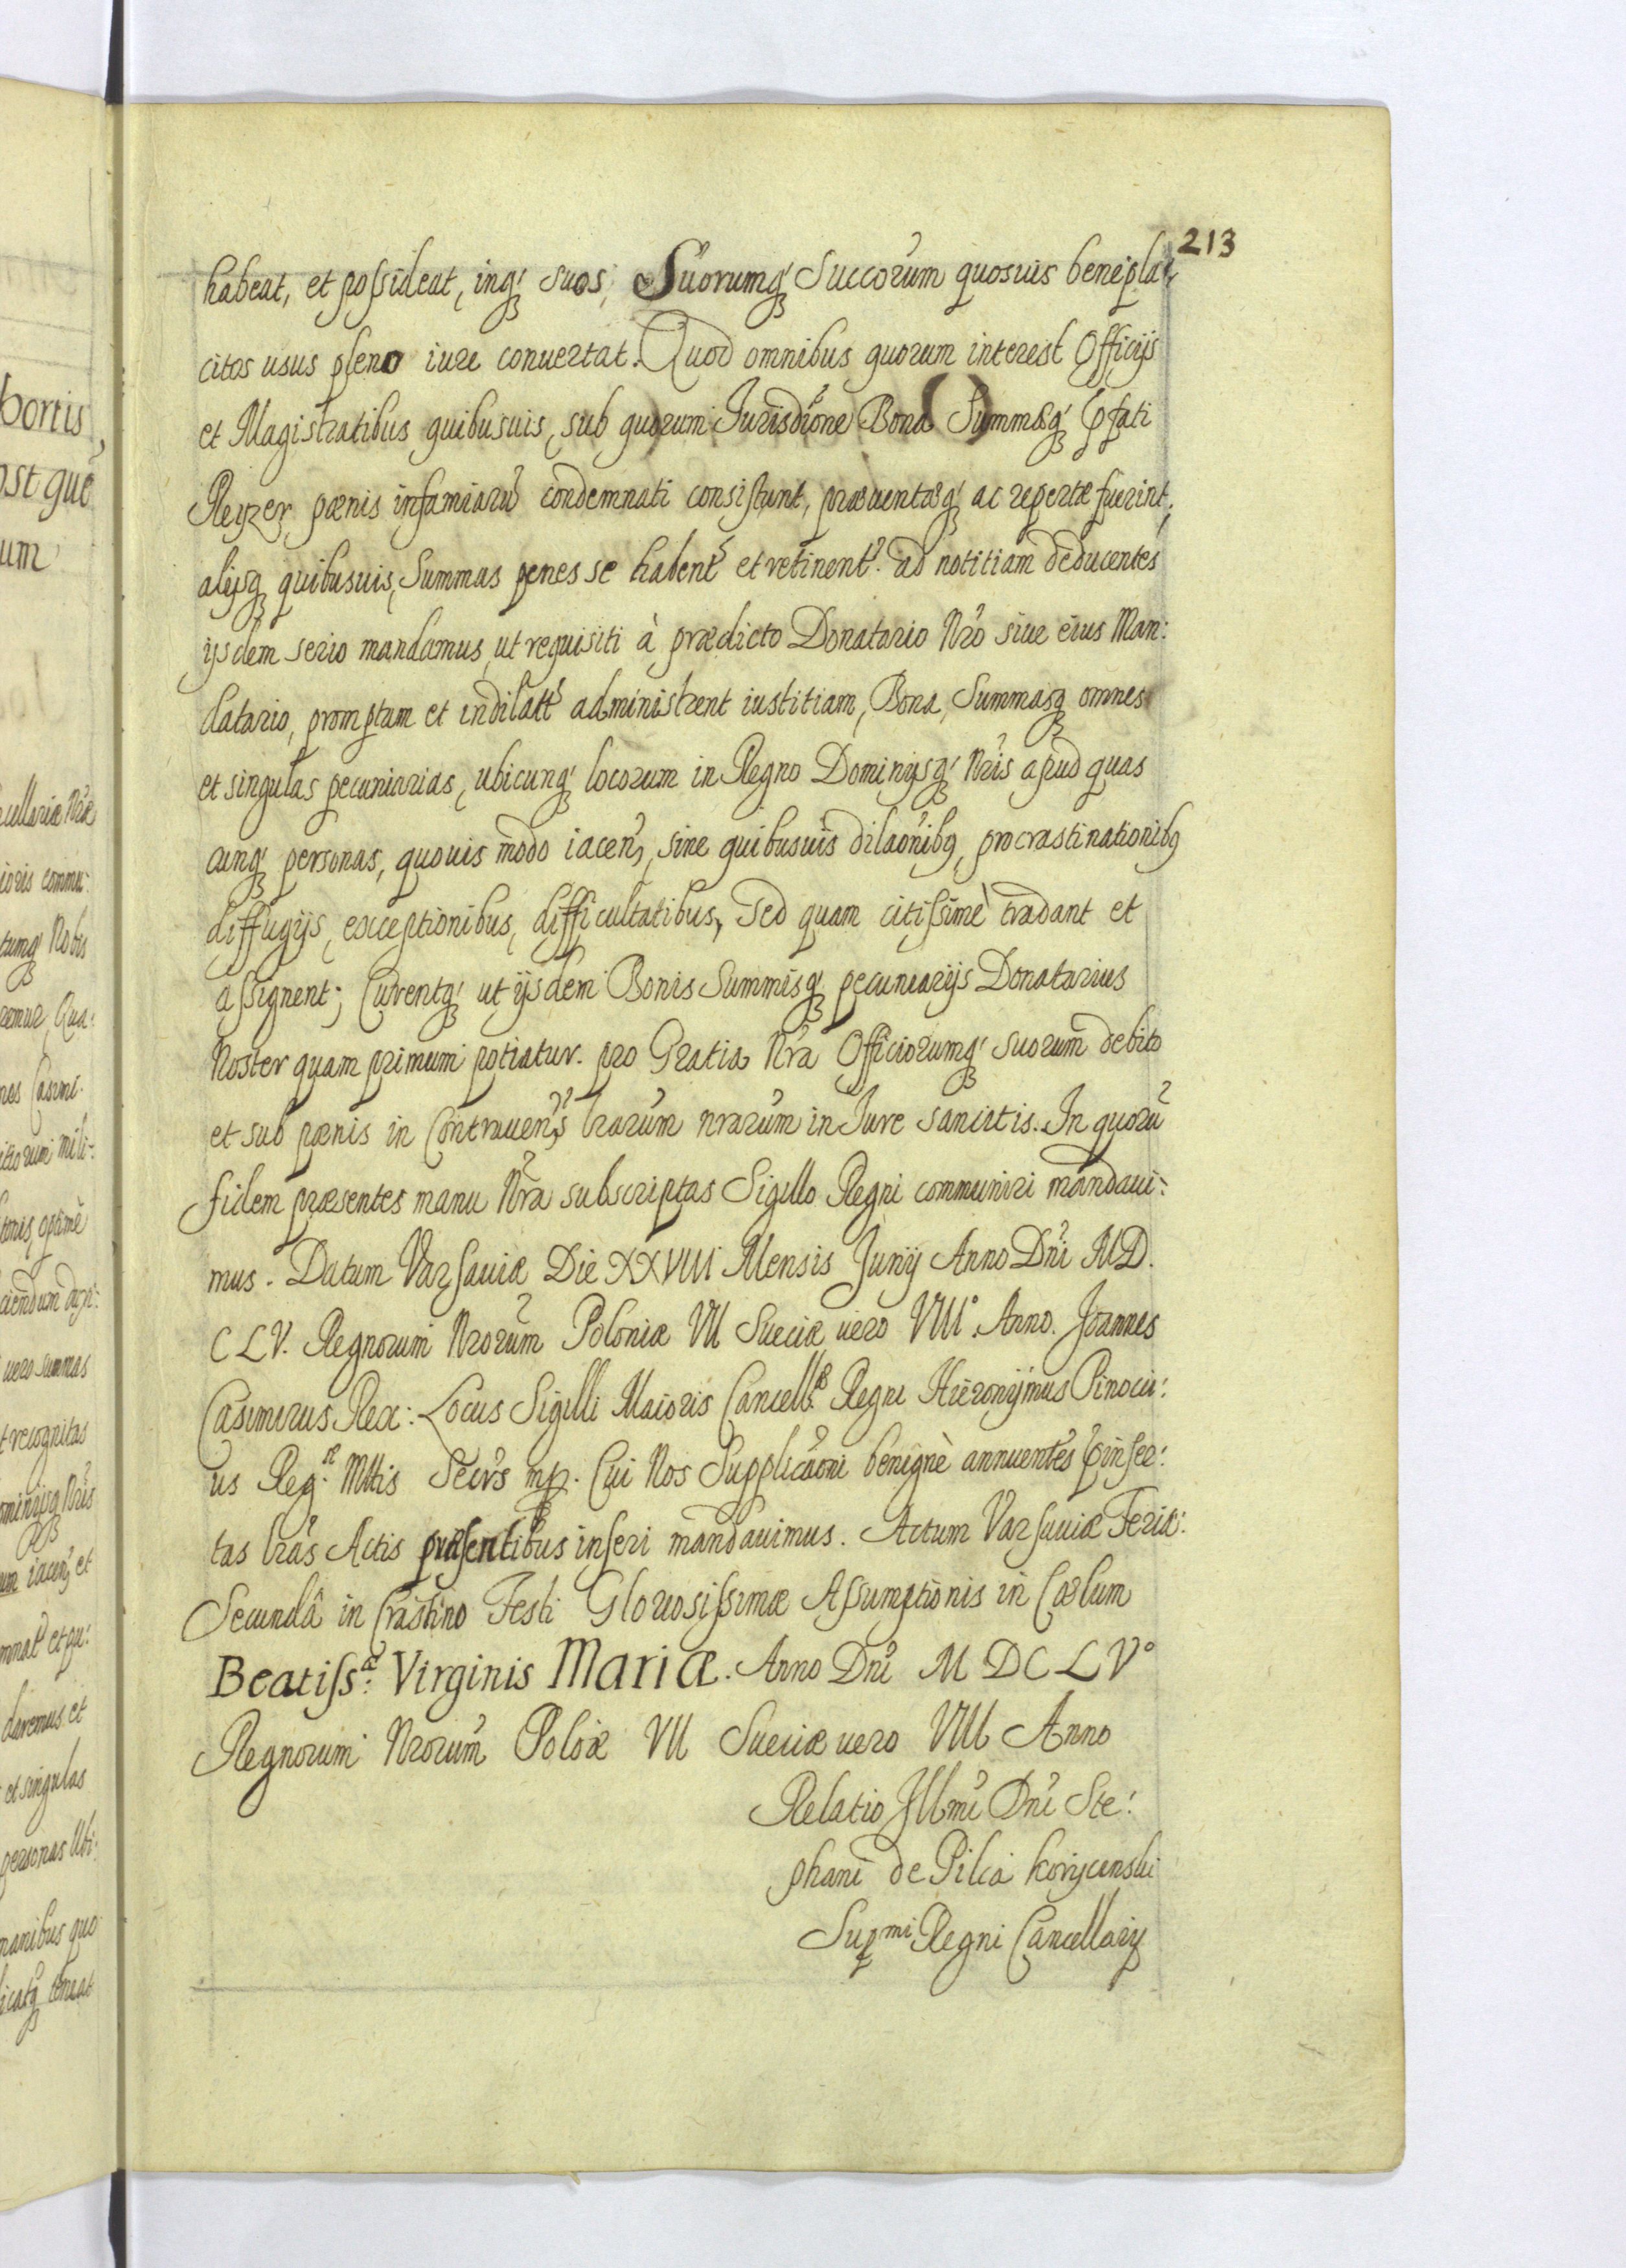 213
habeat, et possideat, inq́ꝫ suos, Suorumq́ꝫ Succorum quosuis benepla-
citos usus pleno iure conuertat. Quod omnibus quorum interest Officijs
et Magistratibus quibusuis, sub quorum Jurisdic̃one Bona Summæq́ꝫ pfati
Reyzer pænis infamiarũ condemnati consistunt, præuentæq́ꝫ ac repertæ fuerint,
alijsqꝫ quibusuis, Summas penes se habent̃ et retinent̃. ad notitiam deducentes
ijsdem serio mandamus, ut requisiti à prædicto Donatario Nr̃o siue eius Man:
datario, promptam et indilatt̃ administrent iustitiam, Bona, Summasqꝫ omnes
et singulas pecuniarias, ubicunq́ꝫ locorum in Regno Dominijsq́ꝫ Nr̃is apud quas
cunq́ꝫ personas, quouis modo iaceñ, sine quibusuis dilaõnibꝫ, procrastinationibꝫ
diffugijs, exceptionibus, difficultatibus, sed quam citissimè tradant et
assignent; Curentq́ꝫ ut ijsdem Bonis Summisq́ꝫ pecuniarijs Donatarius
Noster quam primum potiatur. pro Gratia Nr̃a Officiorumq́ꝫ suorum debito
et sub pænis in Contraueñs lr̃arum nr̃arum in Jure sancitis. In quorũ
fidem præsentes manu Nr̃a subscriptas Sigillo Regni communiri mandaui:
mus. Datum Varsauiæ Die XXVIII Mensis Junij Anno Dñi MD.
CLV. Regnorum Nr̃orum Poloniæ VII Sueciæ uero VIII°. Anno. Joannes
Casimirus Rex: Locus Sigilli Maioris Cancell: Regni Hieronymus Pinocci:
us Reg:æ Mttis Secr̃s mp. Cui Nos Supplicaõni benignè annuentes p̃inser:
tas lr̃as Actis præsentibus inseri mandauimus. Actum Varsauiæ Feria:
Secundâ in Crastino Festi Gloriosissimæ Assumptionis in Cælum
Beatiss:æ Virginis Mariæ. Anno Dñi MDCLV°
Regnorum Nr̃orum Poloæ VII Sueciæ uero VIII Anno
Relatio Jllmi Dñi Ste:
phani de Pilca Korycinski
Supmi Regni Cancellarij